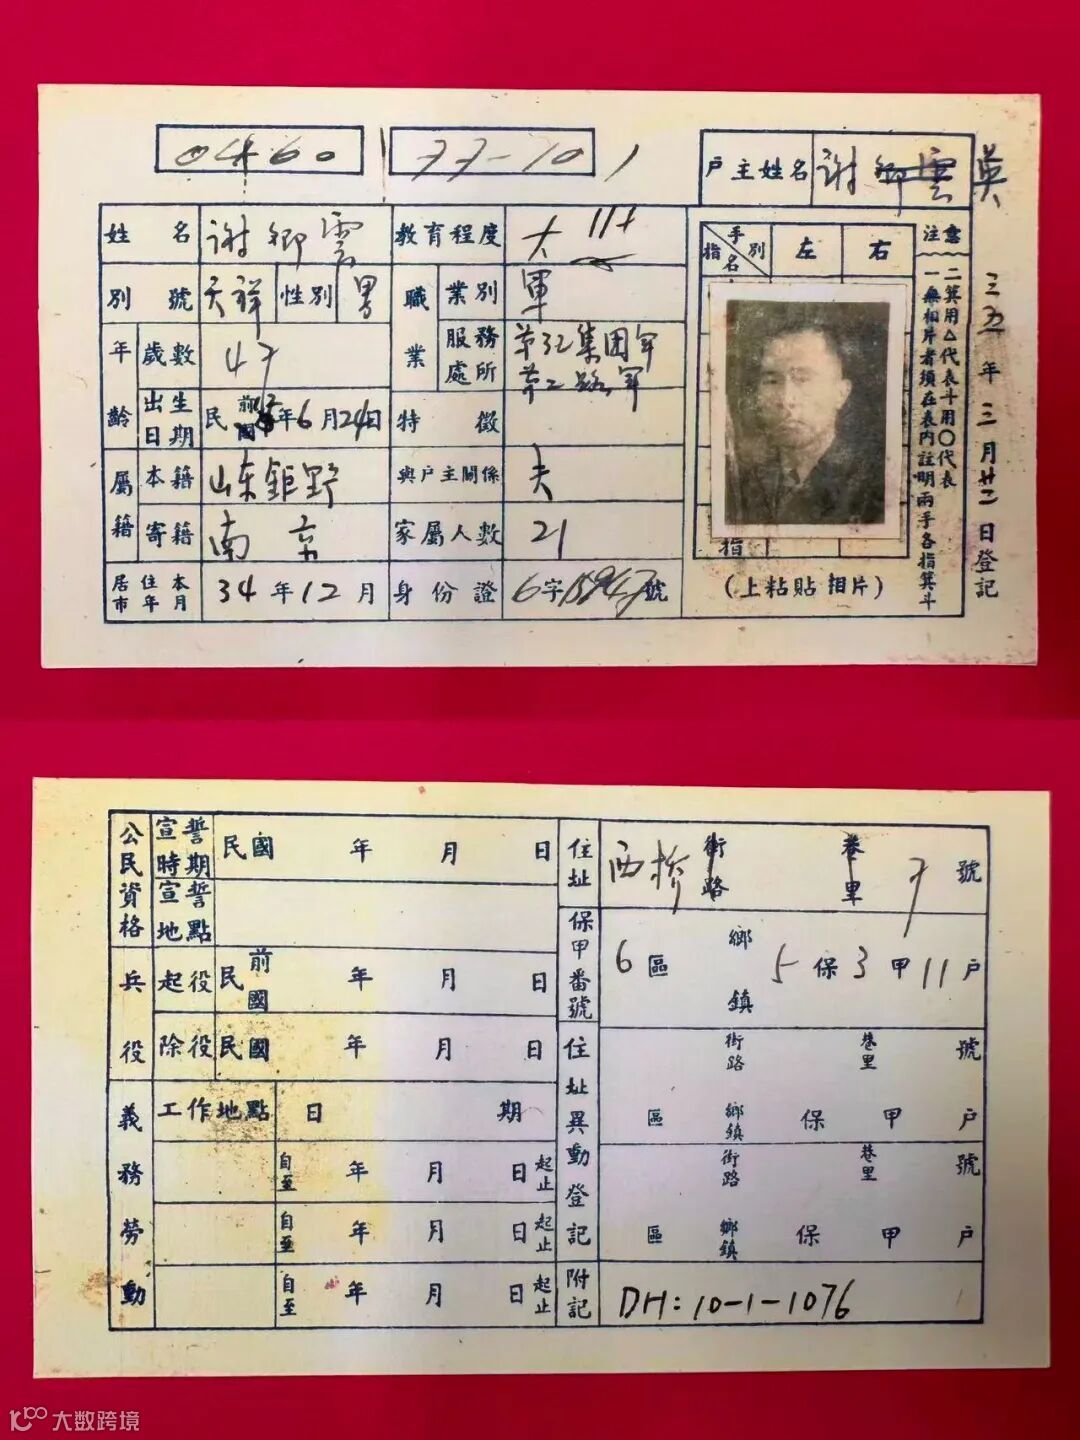 0460
77-10
戶主姓名 謝鄉雲 吳
姓名 謝鄉雲 教育程度 大
別號 天祥 性別 男 職業 業別 軍
年齡 歲數 47 服務處所 第32集團軍
第二路軍
出生日期 民前國 年6月24日 特徵
屬籍 本籍 山东鉅野 與戶主關係 夫
寄籍 南京 家屬人數 21
居住本市年月 34年12月 身份證 6字 號
手別 指名 左 右
指
(上粘貼相片)
注意
一無相片者須在表內註明兩手各指箕斗
二箕用△代表斗用○代表
三五年三月廿二日登記
公民資格 宣誓時期 民國 年 月 日
宣誓地點
兵役 起役 民前國 年 月 日
除役 民國 年 月 日
義務勞動 工作地點 日期
自至 年 月 日 起止
自至 年 月 日 起止
自至 年 月 日 起止
住址 西桥 街路 巷里 7號
保甲番號 6區 鄉鎮 5保3甲11戶
住址異動登記 街路 巷里 號
區 鄉鎮 保 甲 戶
街路 巷里 號
區 鄉鎮 保 甲 戶
附記 DH:10-1-1076
大数跨境